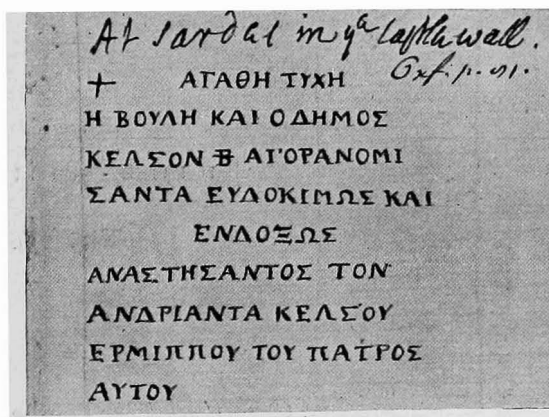 At Sardes in yᵉ Castle wall.
+ ΑΓΑΘΗ ΤΥΧΗ Oxf. p.
Η ΒΟΥΛΗ ΚΑΙ Ο ΔΗΜΟΣ
ΚΕΛΣΟΝ Β ΑΓΟΡΑΝΟΜΙ
ΣΑΝΤΑ ΕΥΔΟΚΙΜΩΣ ΚΑΙ
ΕΝΔΟΞΩΣ
ΑΝΑΣΤΗΣΑΝΤΟΣ ΤΟΝ
ΑΝΔΡΙΑΝΤΑ ΚΕΛΣΟΥ
ΕΡΜΙΠΠΟΥ ΤΟΥ ΠΑΤΡΟΣ
ΑΥΤΟΥ